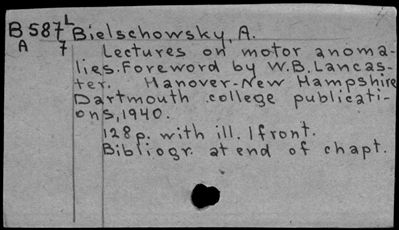 B 587 L Bielschowsky, A.
A 7 Lectures on motor anoma-
lies. Foreword by W.B. Lancas-
ter. Hanover-New Hampshire
Dartmouth college publicati-
ons, 1940.
128 p. with ill. 1 front.
Bibliogr. at end of chapt.